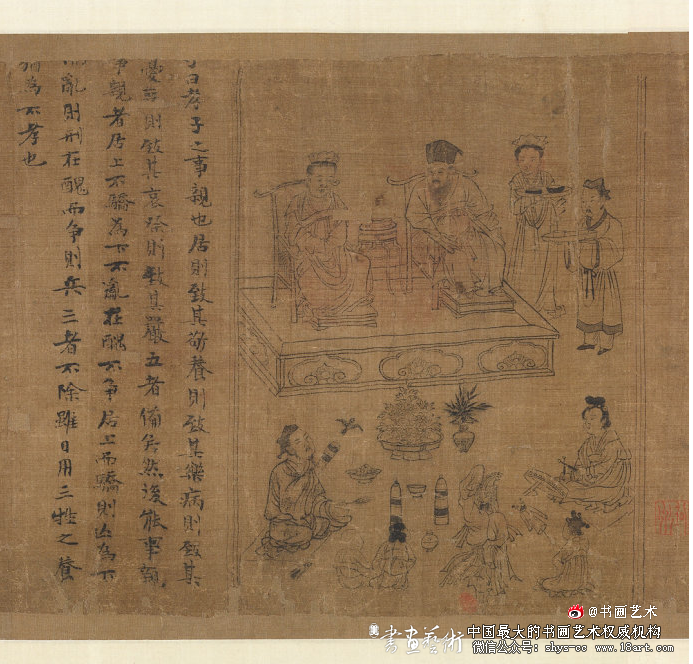 曰孝子之事親也居則致其敬養則致其樂病則致其
憂喪則致其哀祭則致其嚴五者備矣然後能事親
事親者居上不驕為下不亂在醜不争居上而驕則亡為下
亂則刑在醜而争則兵三者不除雖日用三牲之養
猶為不孝也
@书画艺术
美 書畫藝術 中国最大的书画艺术权威机构
微信公众号: shys-cc www.18art.com